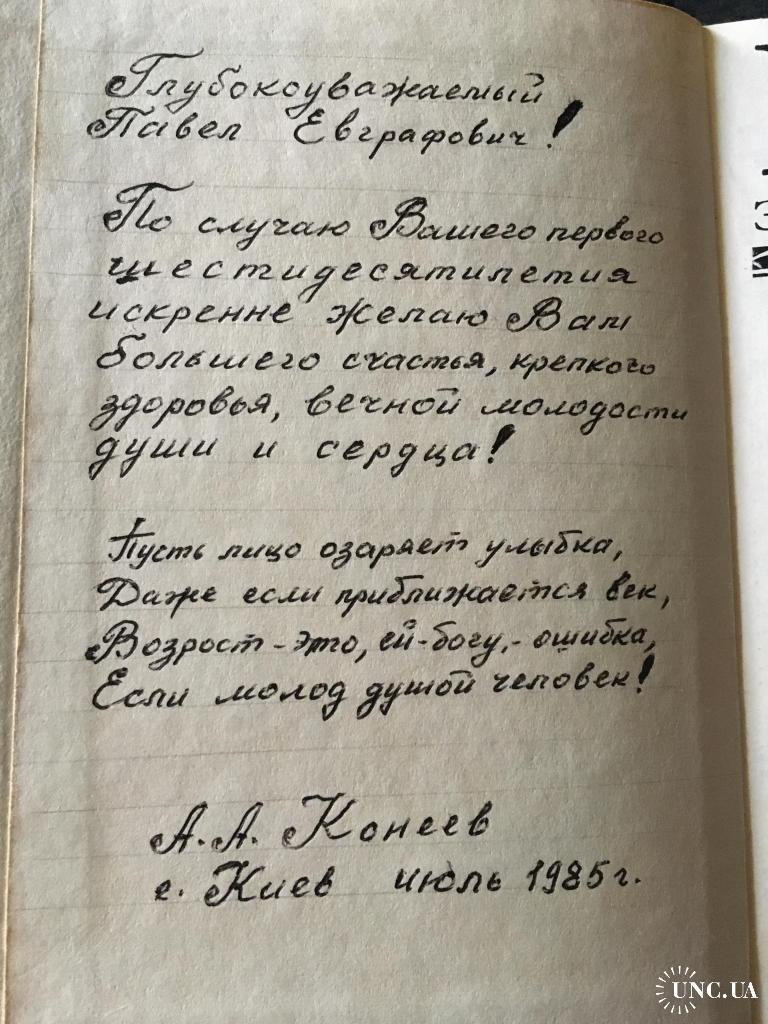 Глубокоуважаемый
Павел Евграфович!
По случаю Вашего первого
шестидесятилетия
искренне желаю Вам
большего счастья, крепкого
здоровья, вечной молодости
души и сердца!
Пусть лицо озаряет улыбка,
Даже если приближается век,
Возрост - это, ей-богу, - ошибка,
Если молод душой человек!
А. А. Конеев
г. Киев июль 1985 г.
UNC.UA